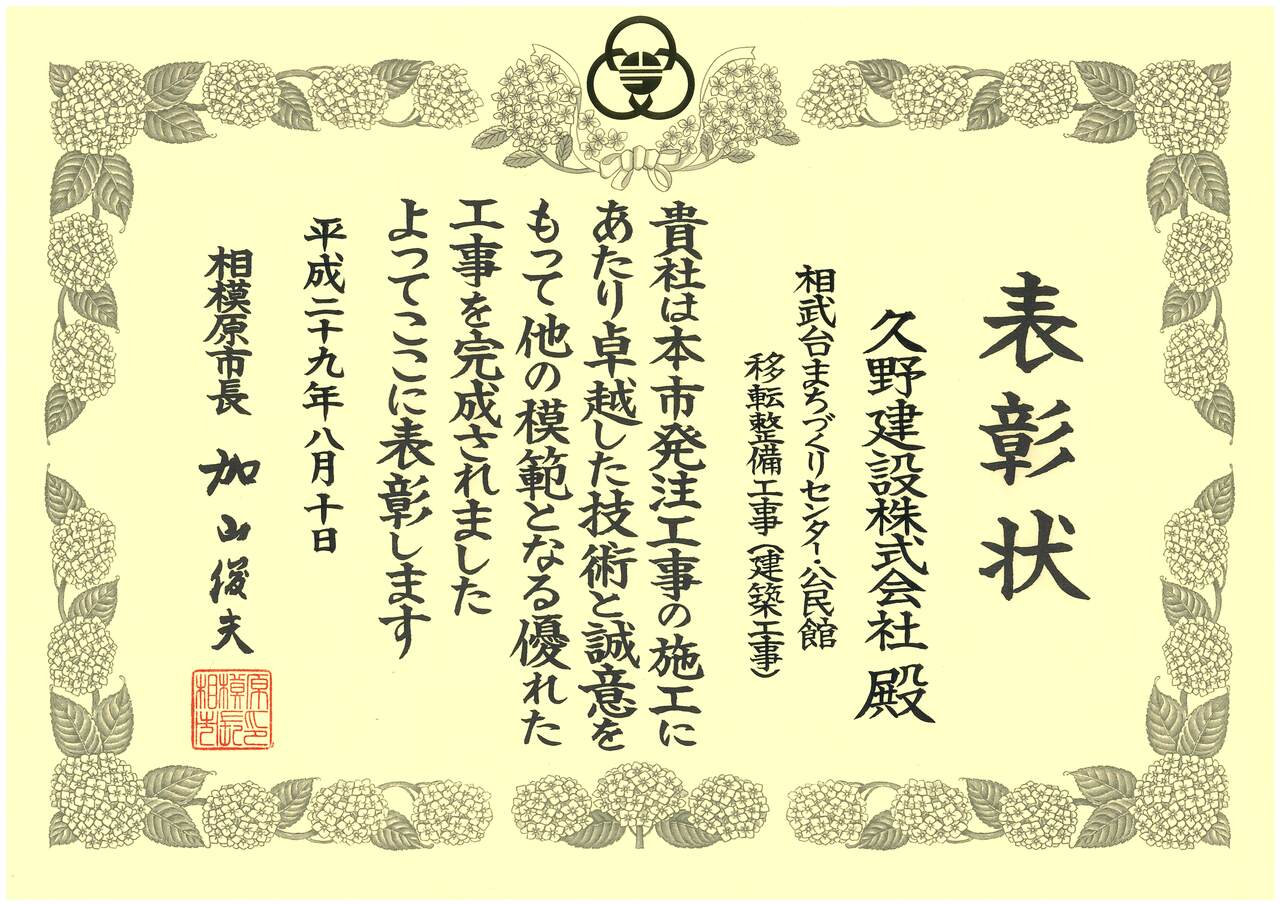 表彰状
久野建設株式会社 殿
相武台まちづくりセンター・公民館
移転整備工事（建築工事）
貴社は本市発注工事の施工に
あたり卓越した技術と誠意を
もって他の模範となる優れた
工事を完成されました
よってここに表彰します
平成二十九年八月十日
相模原市長 加山俊夫